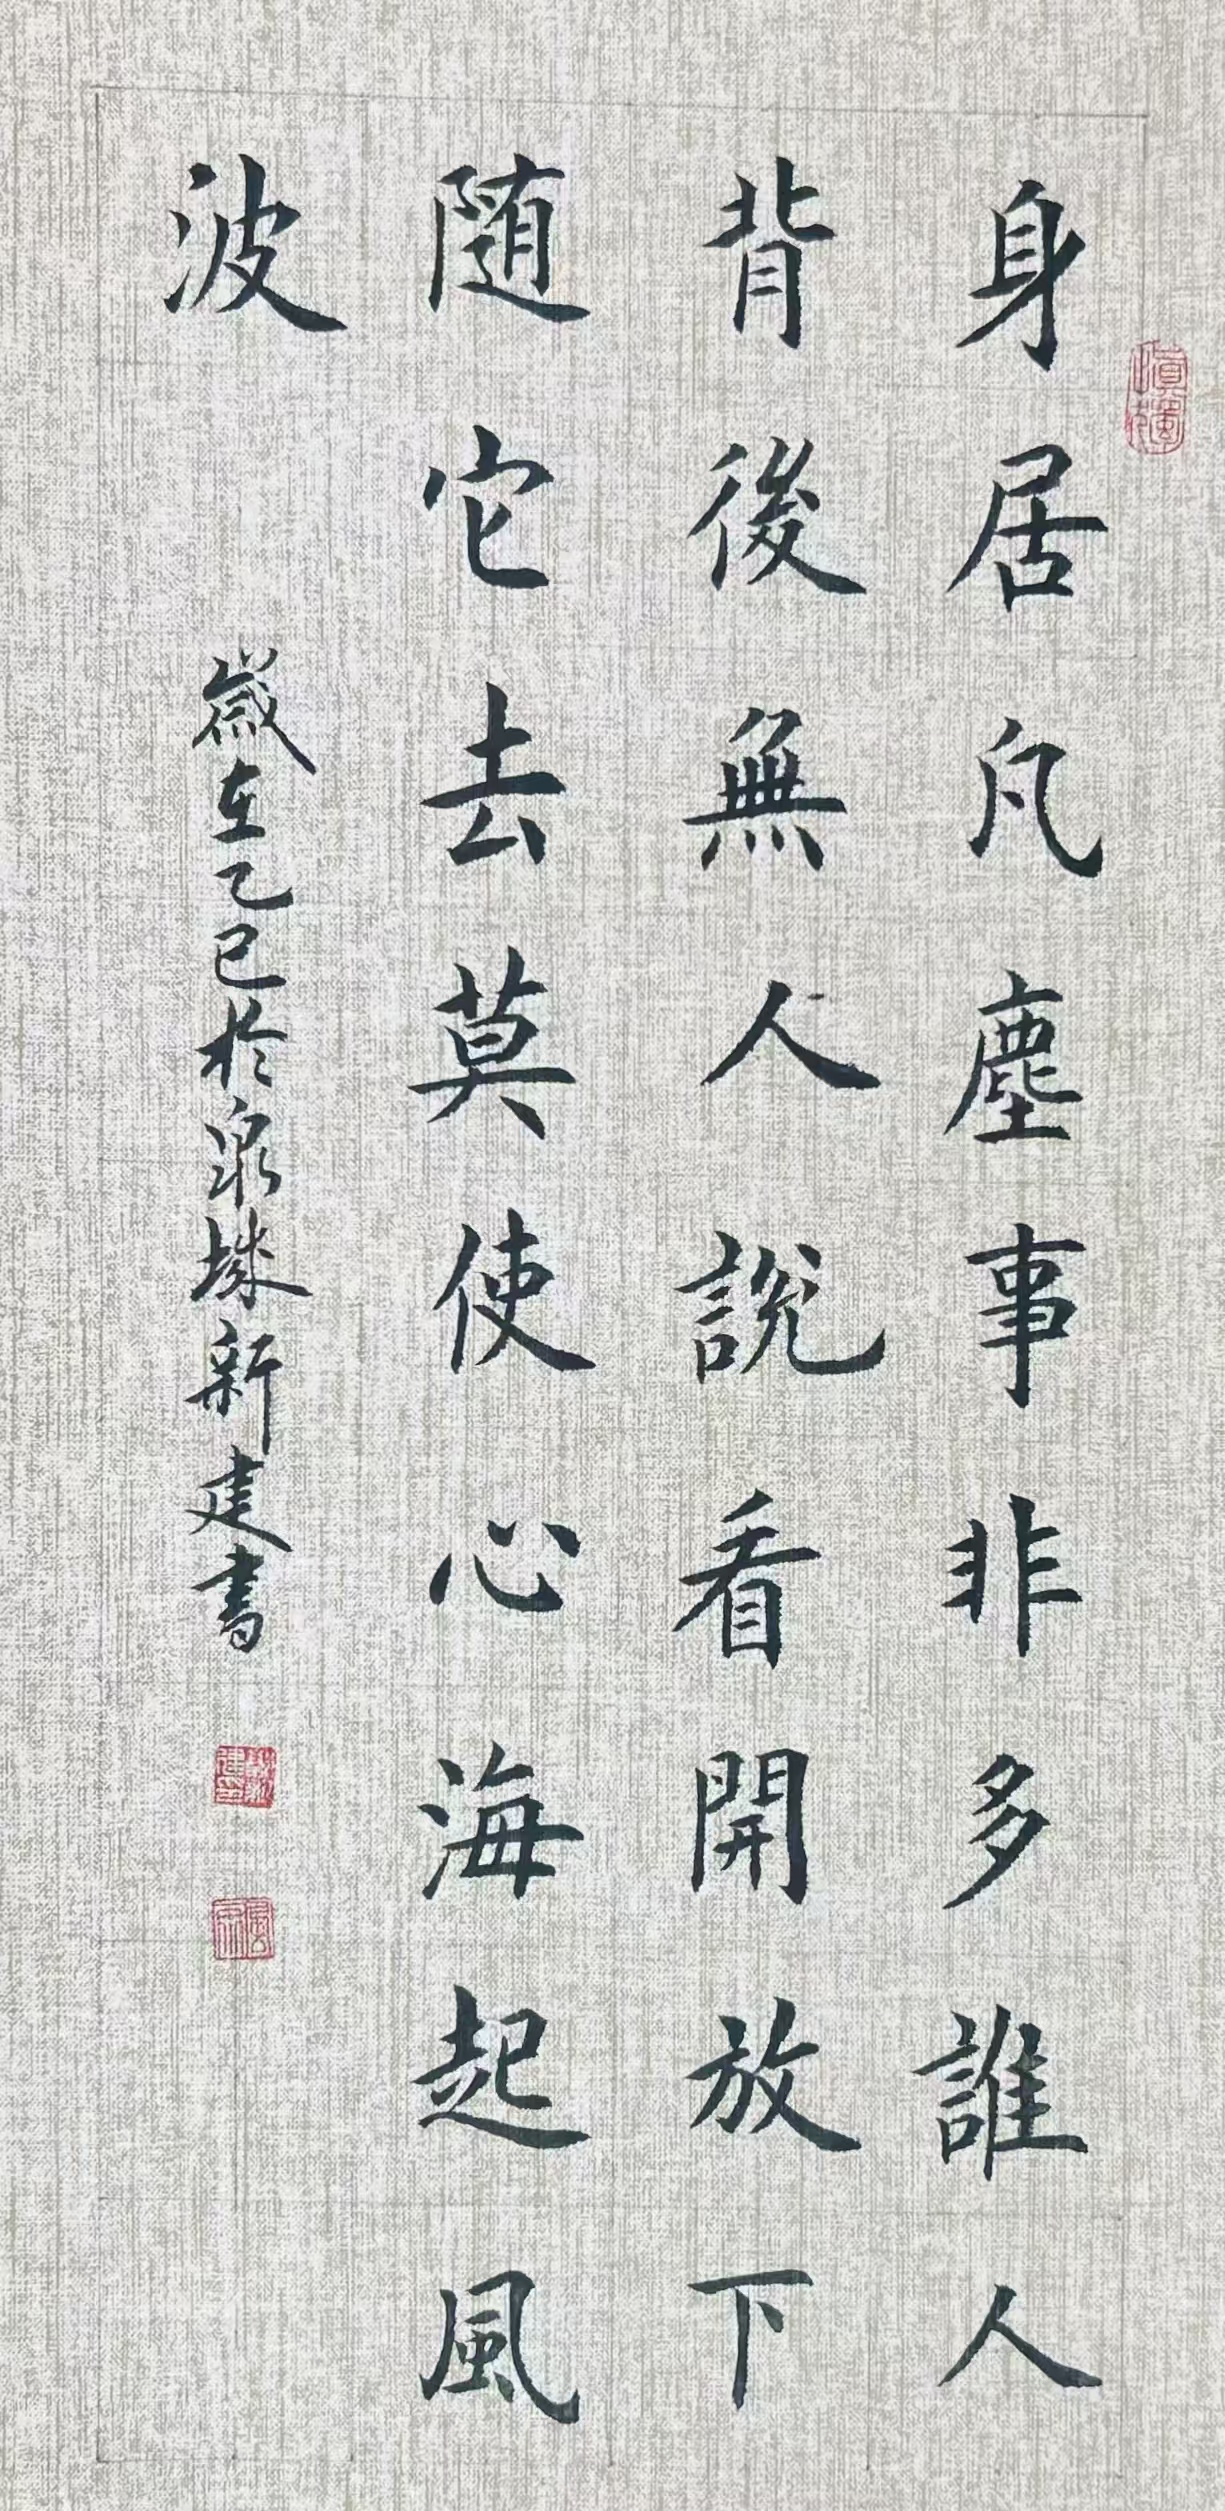 身居凡塵事非多誰人
背後無人說看開放下
随它去莫使心海起風
波
歲在乙巳於泉城新建書